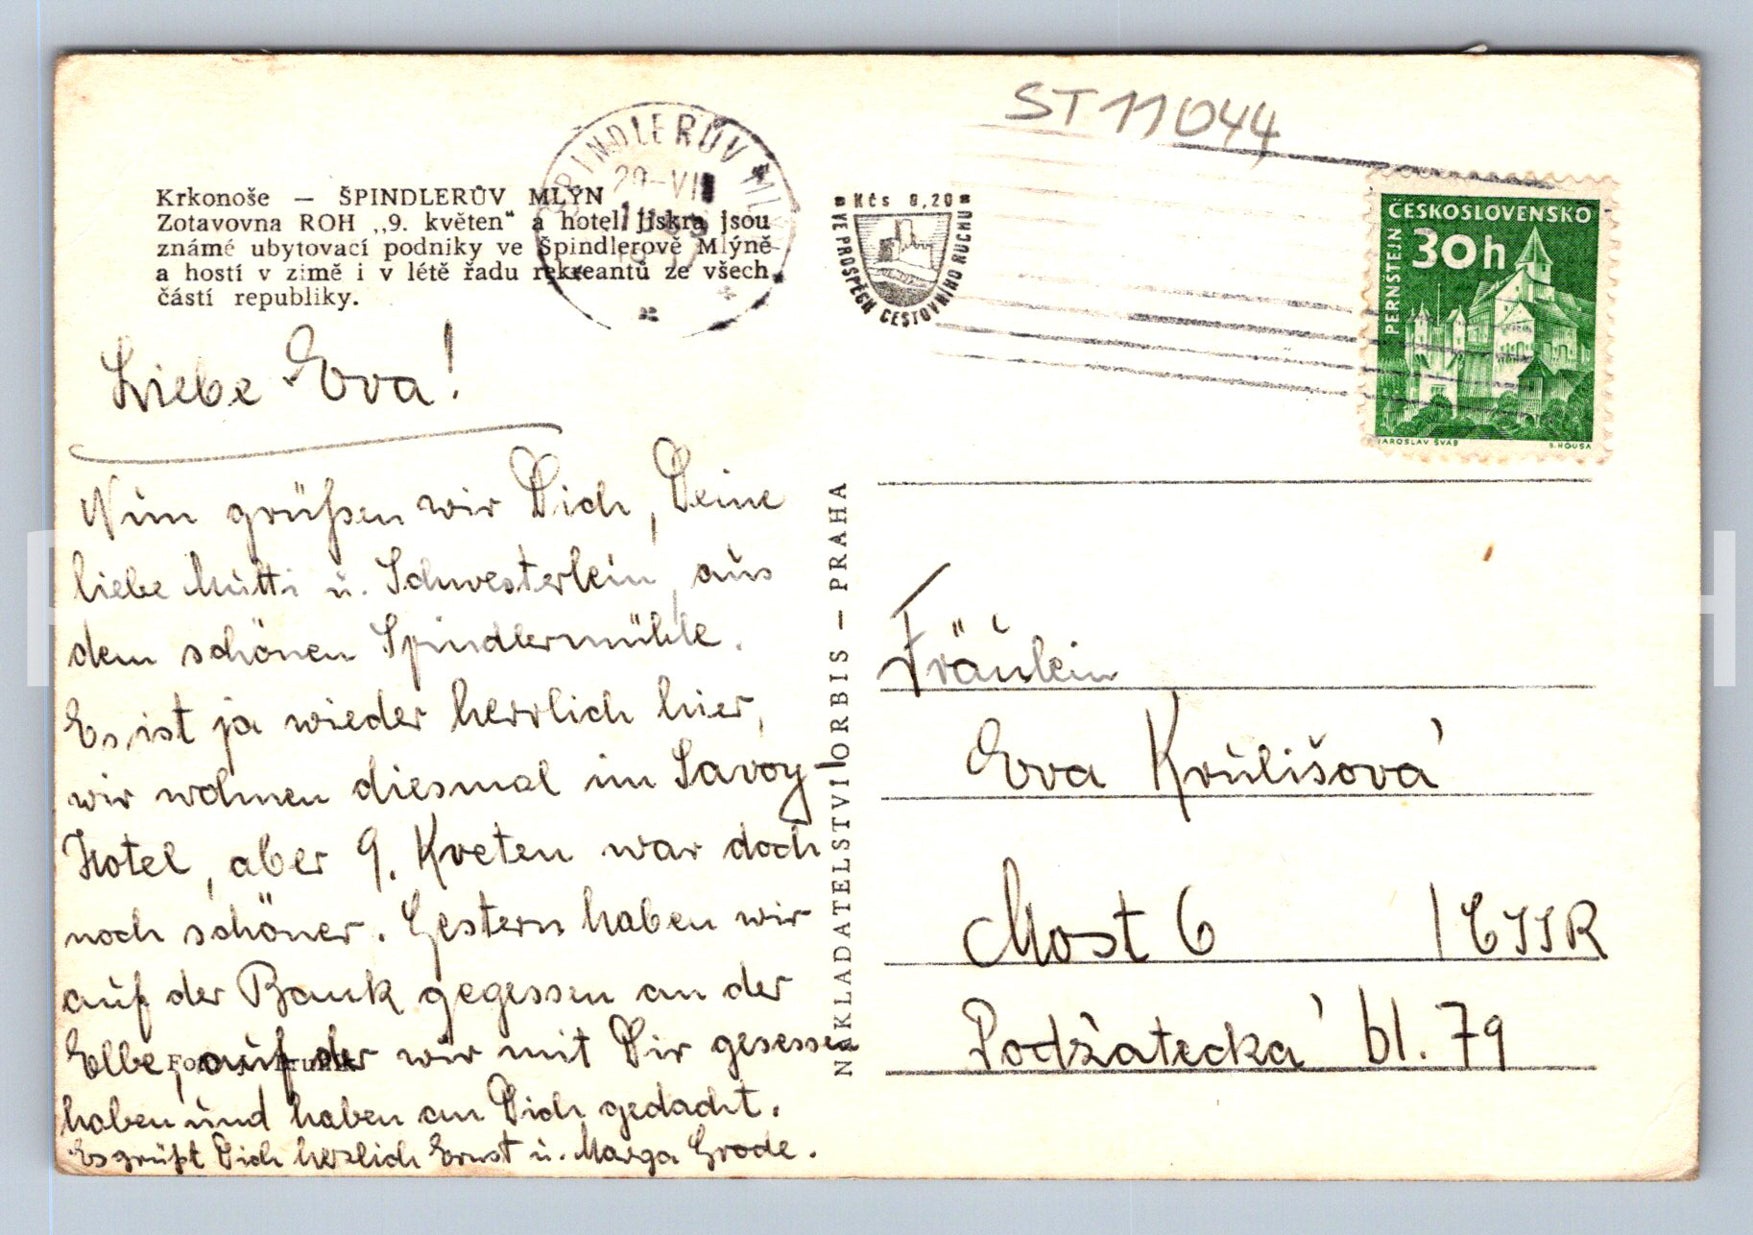 ST 11044
Krkonoše — ŠPINDLERŮV MLÝN
Zotavovna ROH „9. květen“ a hotel Jiskra jsou
známé ubytovací podniky ve Špindlerově Mlýně
a hostí v zimě i v létě řadu rekreantů ze všech
částí republiky.
ŠPINDLERŮV MLÝN
29-VII
Kčs 0,20
VE PROSPĚCH CESTOVNÍHO RUCHU
ČESKOSLOVENSKO
30h
PERNŠTEJN
JAROSLAV ŠVÁB
B. HOUSA
Liebe Eva!
Nun grüßen wir Dich, Deine
liebe Mutti u. Schwesterlein, aus
dem schönen Spindlermühle.
Es ist ja wieder herrlich hier,
wir wohnen diesmal im Savoy-
Hotel, aber 9. Kveten war doch
noch schöner. Gestern haben wir
auf der Bank gegessen an der
Elbe, auf der wir mit Dir gesessen
haben und haben an Dich gedacht.
Es grüßt Dich herzlich Ernst u. Marga Grode.
NAKLADATELSTVÍ ORBIS — PRAHA
Fräulein
Eva Krulišová
Most 6 / ČSSR
Podžatecká bl. 79